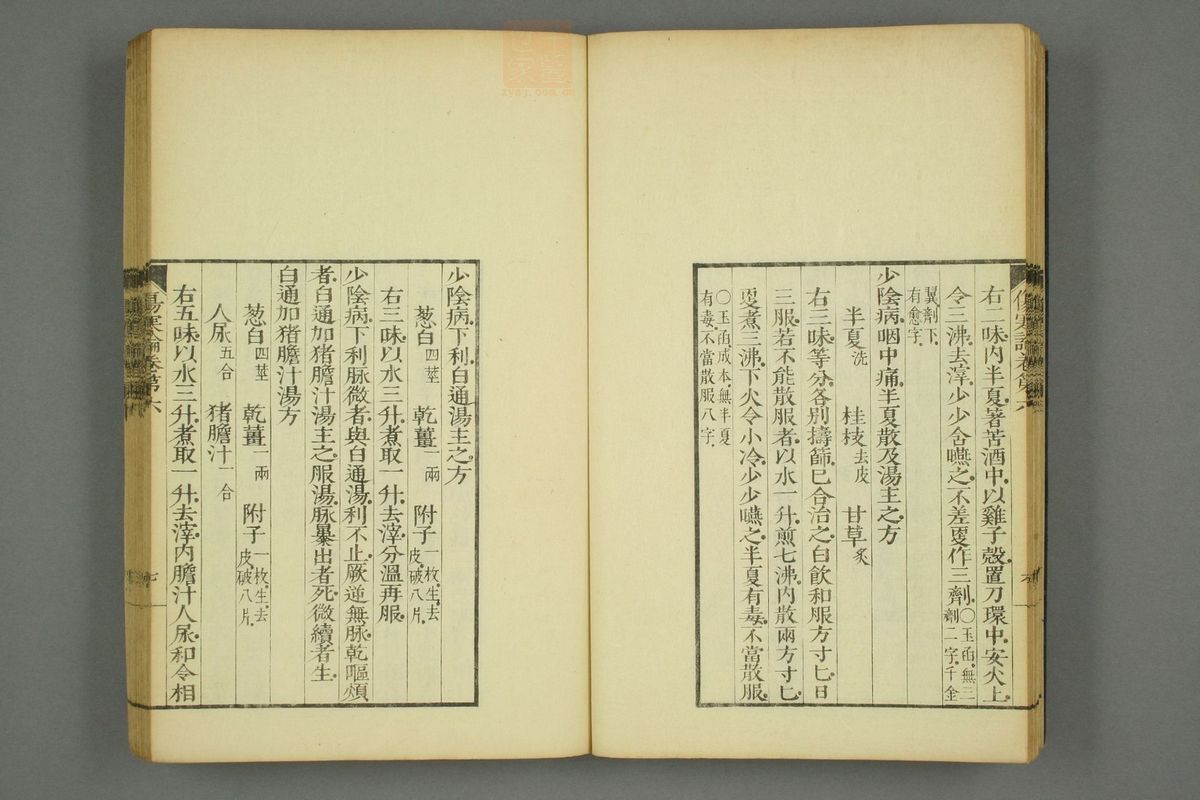 右二味内半夏著苦酒中以雞子殼置刀環中安火上
令三沸去滓少少含嚥之不差更作三劑〇玉函無三劑二字千金
翼劑下有愈字
少陰病咽中痛半夏散及湯主之方
半夏洗 桂枝去皮 甘草炙
右三味等分各别擣篩已合治之白飲和服方寸匕日
三服若不能散服者以水一升煎七沸内散兩方寸匕
更煮三沸下火令小冷少少嚥之半夏有毒不當散服
〇玉函成本無半夏有毒不當散服八字
少陰病下利白通湯主之方
葱白四莖 乾薑一兩 附子一枚生去皮破八片
右三味以水三升煮取一升去滓分溫再服
少陰病下利脉微者與白通湯利不止厥逆無脉乾嘔煩
者白通加猪膽汁湯主之服湯脉暴出者死微續者生
白通加猪膽汁湯方
葱白四莖 乾薑一兩 附子一枚生去皮破八片
人尿五合 猪膽汁一合
右五味以水三升煮取一升去滓内膽汁人尿和令相
傷寒論卷第六